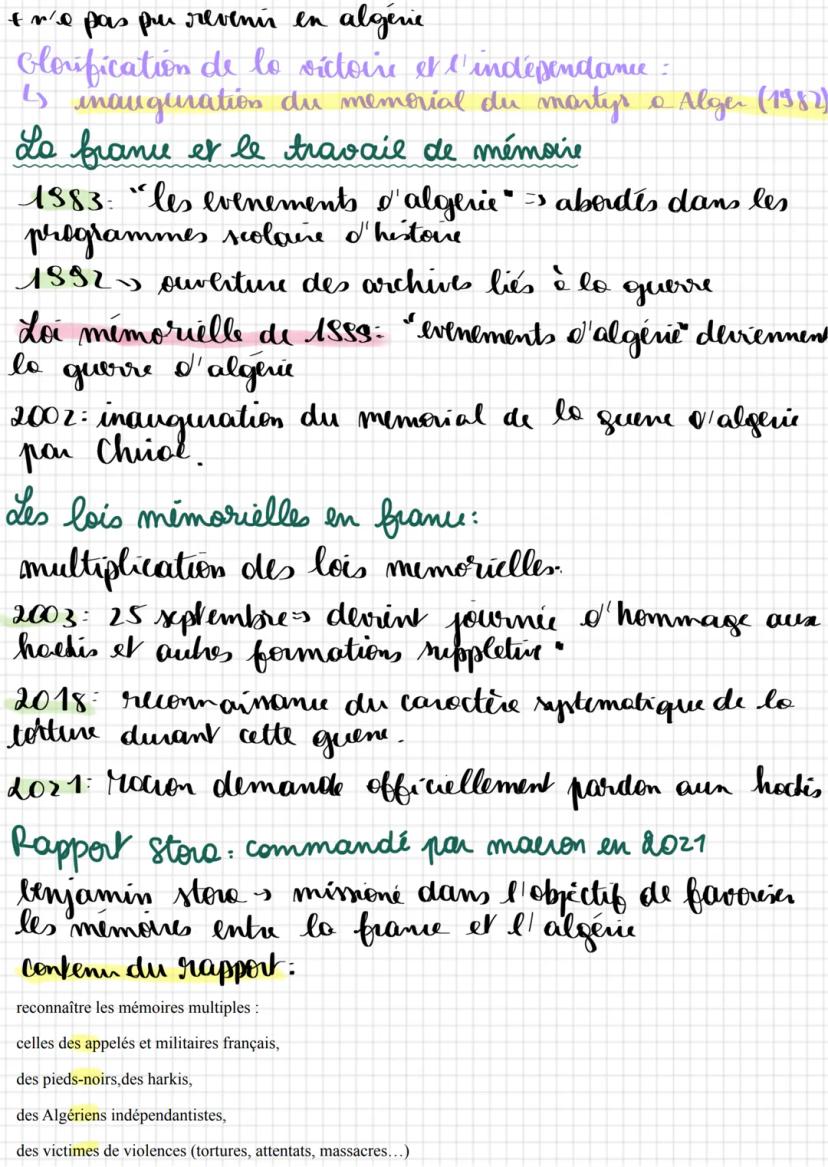 + n'a pas pu revenir en algérie
Glorification de la victoire et l'indépendance :
↳ inauguration du memorial du martyr a Alger (1982)
La france et le travail de mémoire
1983: "les evenements d'algerie" => abordés dans les
programmes scolaire d'histoire
1992 → ouverture des archives liés à la guerre
Loi mémorielle de 1999: "evenements d'algérie" deviennent
la guerre d'algérie
2002: inauguration du memorial de la guerre d'algerie
par Chirac.
Les lois mémorielles en france:
multiplication des lois memorielles.
2003: 25 septembre => devint journée d'hommage aux
harkis et autres formations suppletive "
2018: reconnaissance du caractère systematique de la
torture durant cette guerre.
2021: Macron demande officiellement pardon aux harkis
Rapport Stora: commandé par macron en 2021
benjamin stora → missioné dans l'objectif de favoriser
les mémoires entre la france et l'algérie
contenu du rapport:
reconnaître les mémoires multiples :
celles des appelés et militaires français,
des pieds-noirs,des harkis,
des Algériens indépendantistes,
des victimes de violences (tortures, attentats, massacres…)